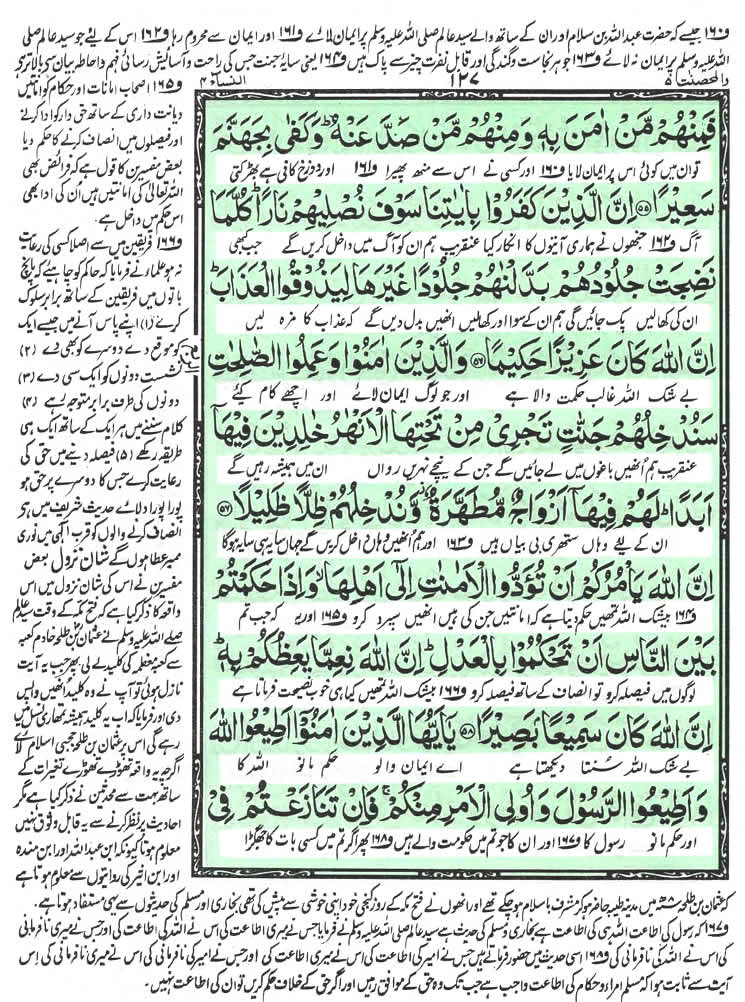 و۱۶۰ جیسے کہ حضرت عبداللہ بن سلام اور ان کے ساتھ والے سید عالم صلی اللہ علیہ وسلم پر ایمان لائے و۱۶۱ اور ایمان سے محروم رہا و۱۶۲ اس کے لیئے جو سید عالم صلی
اللہ علیہ وسلم پر ایمان نہ لائے و۱۶۳ جو ہر نجاست و گندگی اور قابل نفرت چیز سے پاک ہیں و۱۶۴ یعنی سایۂ جنت جس کی راحت و آسائش رسائی فہم و احاطۂ بیان سے بالاتر ہے
والمحصنت ۵
۱۲۷
النساء ۴
فَمِنْهُمْ مَّنْ اٰمَنَ بِهٖ وَمِنْهُمْ مَّنْ صَدَّ عَنْهُ ؕ وَكَفٰى بِجَهَنَّمَ
تو ان میں کوئی اس پر ایمان لایا و۱۶۰ اور کسی نے اس سے منھ پھیرا و۱۶۱ اور دوزخ کافی ہے بھڑکتی
سَعِيْرًا ۵۵ اِنَّ الَّذِيْنَ كَفَرُوْا بِاٰيٰتِنَا سَوْفَ نُصْلِيْهِمْ نَارًا ؕ كُلَّمَا
آگ و۱۶۲ جنھوں نے ہماری آیتوں کا انکار کیا عنقریب ہم ان کو آگ میں داخل کریں گے جب کبھی
نَضِجَتْ جُلُوْدُهُمْ بَدَّلْنٰهُمْ جُلُوْدًا غَيْرَهَا لِيَذُوْقُوا الْعَذَابَ ؕ
ان کی کھالیں پک جائیں گی ہم ان کے سوا اور کھالیں انھیں بدل دیں گے کہ عذاب کا مزہ لیں
اِنَّ اللّٰهَ كَانَ عَزِيْزًا حَكِيْمًا ۵۶ وَالَّذِيْنَ اٰمَنُوْا وَعَمِلُوا الصّٰلِحٰتِ
بے شک اللہ غالب حکمت والا ہے اور جو لوگ ایمان لائے اور اچھے کام کیئے
سَنُدْخِلُهُمْ جَنّٰتٍ تَجْرِىْ مِنْ تَحْتِهَا الْاَنْهٰرُ خٰلِدِيْنَ فِيْهَاۤ
عنقریب ہم اُنھیں باغوں میں لے جائیں گے جن کے نیچے نہریں رواں ان میں ہمیشہ رہیں گے
اَبَدًا ؕ لَهُمْ فِيْهَاۤ اَزْوَاجٌ مُّطَهَّرَةٌ ۫ وَّنُدْخِلُهُمْ ظِلًّا ظَلِيْلًا ۵۷
ان کے لیئے وہاں ستھری بی بیاں ہیں و۱۶۳ اور ہم اُنھیں وہاں داخل کریں گے جہاں سایہ ہی سایہ ہوگا
اِنَّ اللّٰهَ يَاْمُرُكُمْ اَنْ تُؤَدُّوا الْاَمٰنٰتِ اِلٰٓى اَهْلِهَا ۙ وَاِذَا حَكَمْتُمْ
و۱۶۴ بیشک اللہ تمھیں حکم دیتا ہے کہ امانتیں جن کی ہیں انھیں سپرد کرو و۱۶۵ اور یہ کہ جب تم
بَيْنَ النَّاسِ اَنْ تَحْكُمُوْا بِالْعَدْلِ ؕ اِنَّ اللّٰهَ نِعِمَّا يَعِظُكُمْ بِهٖ ؕ
لوگوں میں فیصلہ کرو تو انصاف کے ساتھ فیصلہ کرو و۱۶۶ بیشک اللہ تمھیں کیا ہی خوب نصیحت فرماتا ہے
اِنَّ اللّٰهَ كَانَ سَمِيْعًا بَصِيْرًا ۵۸ يٰۤاَيُّهَا الَّذِيْنَ اٰمَنُوْۤا اَطِيْعُوا اللّٰهَ
بے شک اللہ سنتا دیکھتا ہے اے ایمان والو حکم مانو اللہ کا
وَ اَطِيْعُوا الرَّسُوْلَ وَ اُولِى الْاَمْرِ مِنْكُمْ ۚ فَاِنْ تَنَازَعْتُمْ فِىْ
اور حکم مانو رسول کا و۱۶۷ اور ان کا جو تم میں حکومت والے ہیں و۱۶۸ پھر اگر تم میں کسی بات کا جھگڑا
و۱۶۵ اصحاب امانات اور حکام کو امانتیں
دیانت داری کے ساتھ حق دار کو ادا کرنے
اور فیصلوں میں انصاف کرنے کا حکم دیا
بعض مفسرین کا قول ہے کہ فرائض بھی
اللہ تعالیٰ کی امانتیں ہیں اُن کی ادا بھی
اس حکم میں داخل ہے۔
و۱۶۶ فریقین میں سے اصلا کسی کی رعایت
نہ ہو علماء نے فرمایا کہ حاکم کو چاہیئے کہ پانچ
باتوں میں فریقین کے ساتھ برابر سلوک
کرے (۱) اپنے پاس آنے میں جیسے ایک
کو موقع دے دوسرے کو بھی دے (۲)
نشست دونوں کو ایک سی دے (۳)
دونوں کی طرف برابر متوجہ رہے (۴)
کلام سننے میں ہر ایک کے ساتھ ایک ہی
طریقہ رکھے (۵) فیصلہ دینے میں حق کی
رعایت کرے جس کا دوسرے پر حق ہو
پورا پورا دلائے حدیث شریف میں ہے
انصاف کرنے والوں کو قرب الٰہی میں نوری
ممبر عطا ہوں گے شان نزول بعض
مفسرین نے اس کی شان نزول میں اس
واقعہ کا ذکر کیا ہے کہ فتح مکہ کے وقت سید عالم
صلے اللہ علیہ وسلم نے عثمان بن طلحہ خادم کعبہ
سے کعبۂ معظمہ کی کلید لے لی پھر جب یہ آیت
نازل ہوئی تو آپ نے وہ کلید انھیں واپس
دی اور فرمایا کہ اب یہ کلید ہمیشہ تمھاری نسل میں
رہے گی اس پر عثمان بن طلحہ حجبی اسلام لائے
اگرچہ یہ واقعہ تھوڑے تھوڑے تغیرات کے
ساتھ بہت سے محدثین نے ذکر کیا ہے مگر
احادیث پر نظر کرنے سے یہ قابل وثوق نہیں
معلوم ہوتا کیونکہ ابن عبداللہ اور ابن مندہ
اور ابن اثیر کی روایتوں سے معلوم ہوتا ہے
کہ عثمان بن طلحہ ۸ھ میں مدینہ طیبہ حاضر ہو کر مشرف باسلام ہو چکے تھے اور انھوں نے فتح مکہ کے روز کنجی خود اپنی خوشی سے پیش کی تھی بخاری اور مسلم کی حدیثوں سے یہی مستفاد ہوتا ہے۔
و۱۶۷ کہ رسول کی اطاعت اللہ ہی کی اطاعت ہے بخاری و مسلم کی حدیث ہے سید عالم صلی اللہ علیہ وسلم نے فرمایا جس نے میری اطاعت کی اس نے اللہ کی اطاعت کی اور جس نے میری نافرمانی
کی اس نے اللہ کی نافرمانی کی و۱۶۸ اسی حدیث میں حضور فرماتے ہیں جس نے امیر کی اطاعت کی اس نے میری اطاعت کی اور جس نے امیر کی نافرمانی کی اس نے میری نافرمانی کی اس
آیت سے ثابت ہوا کہ مسلم امراء و حکام کی اطاعت واجب ہے جب تک وہ حق کے موافق رہیں اور اگر حق کے خلاف حکم کریں تو ان کی اطاعت نہیں۔